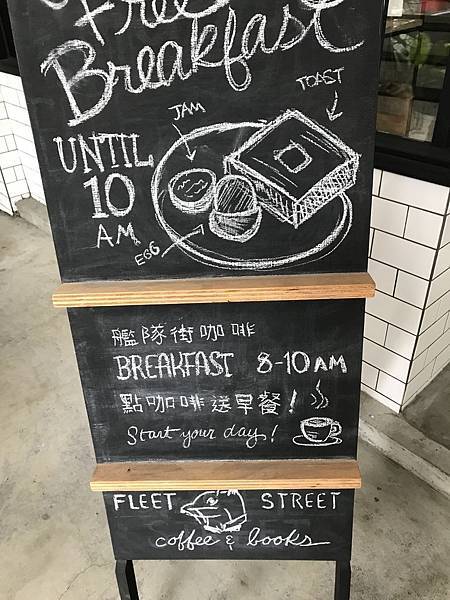 Free
Breakfast
UNTIL
10
AM
JAM
TOAST
EGG
艦隊街咖啡
BREAKFAST 8-10 AM
點咖啡送早餐！
Start your day!
FLEET STREET
coffee & books